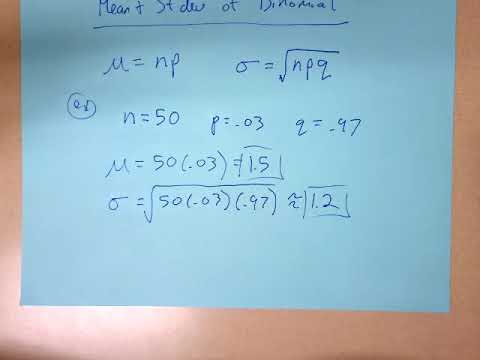 Mean + St dev of Binomial
μ = np σ = √npq
ex n = 50 p = .03 q = .97
μ = 50(.03) = 1.5
σ = √50(.03)(.97) ≈ 1.2